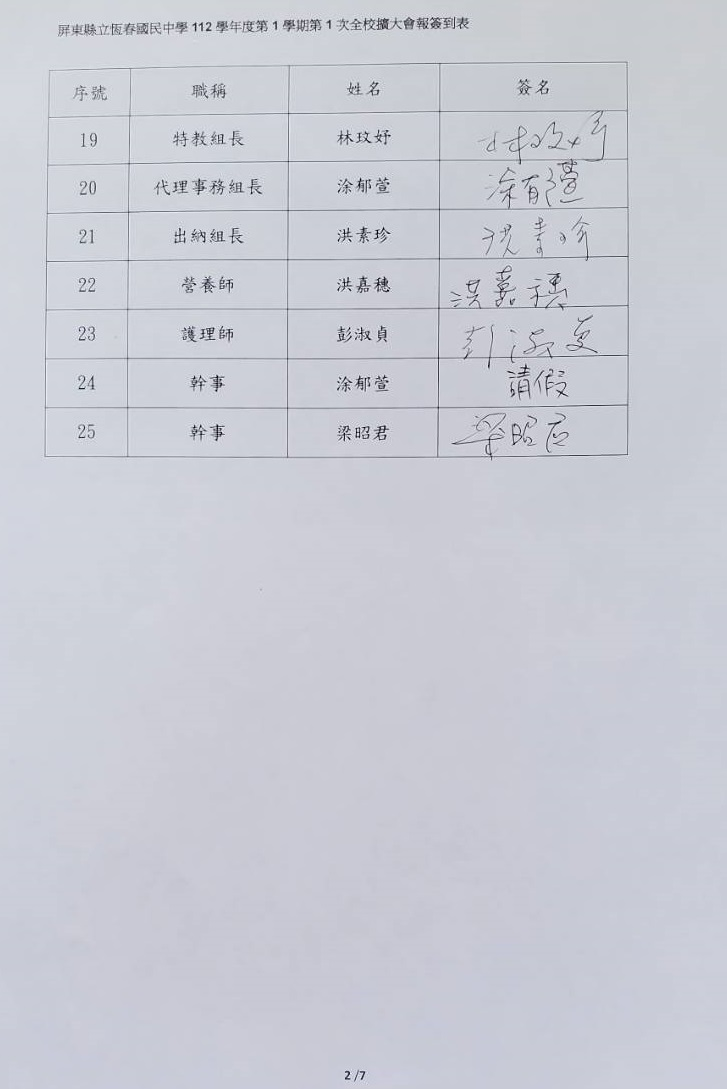 屏東縣立恆春國民中學 112 學年度第 1 學期第 1 次全校擴大會報簽到表
序號 職稱 姓名 簽名
19 特教組長 林玟妤 林玟妤
20 代理事務組長 涂郁萱 涂郁萱
21 出納組長 洪素珍 洪素珍
22 營養師 洪嘉穗 洪嘉穗
23 護理師 彭淑貞 彭淑貞
24 幹事 涂郁萱 請假
25 幹事 梁昭君 梁昭君
2 /7